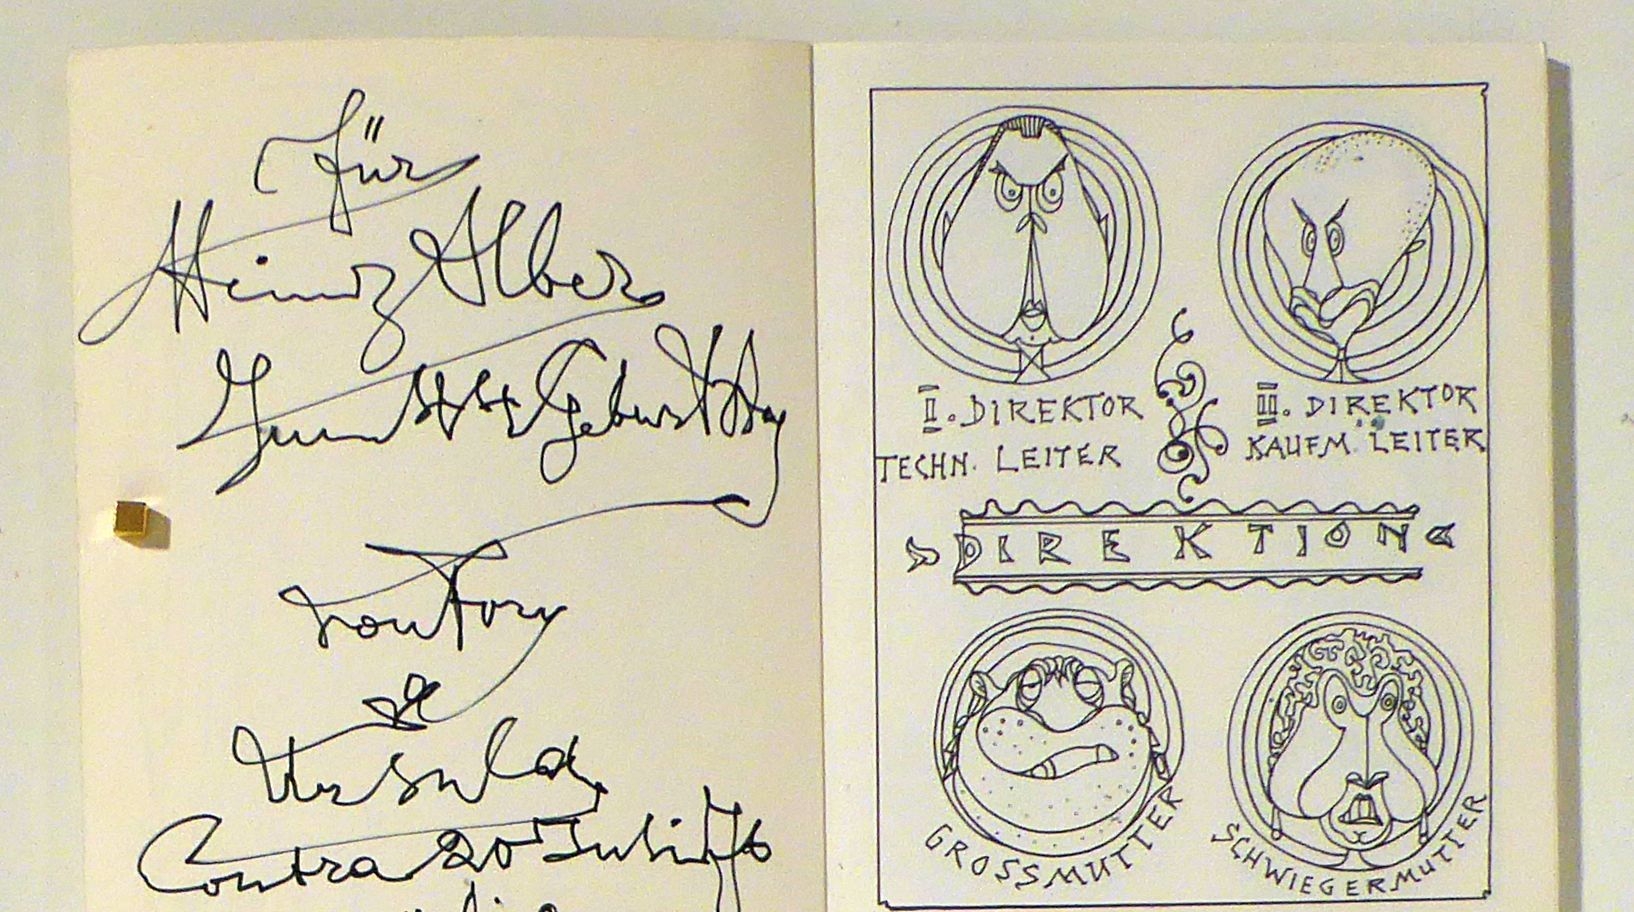 für
Heinz Alber
zum 44 Geburtstag
von Tom
&
Ursula
Contra 20
II. DIREKTOR
TECHN. LEITER
III. DIREKTOR
KAUFM. LEITER
DIREKTION
GROSSMUTTER
SCHWIEGERMUTTER